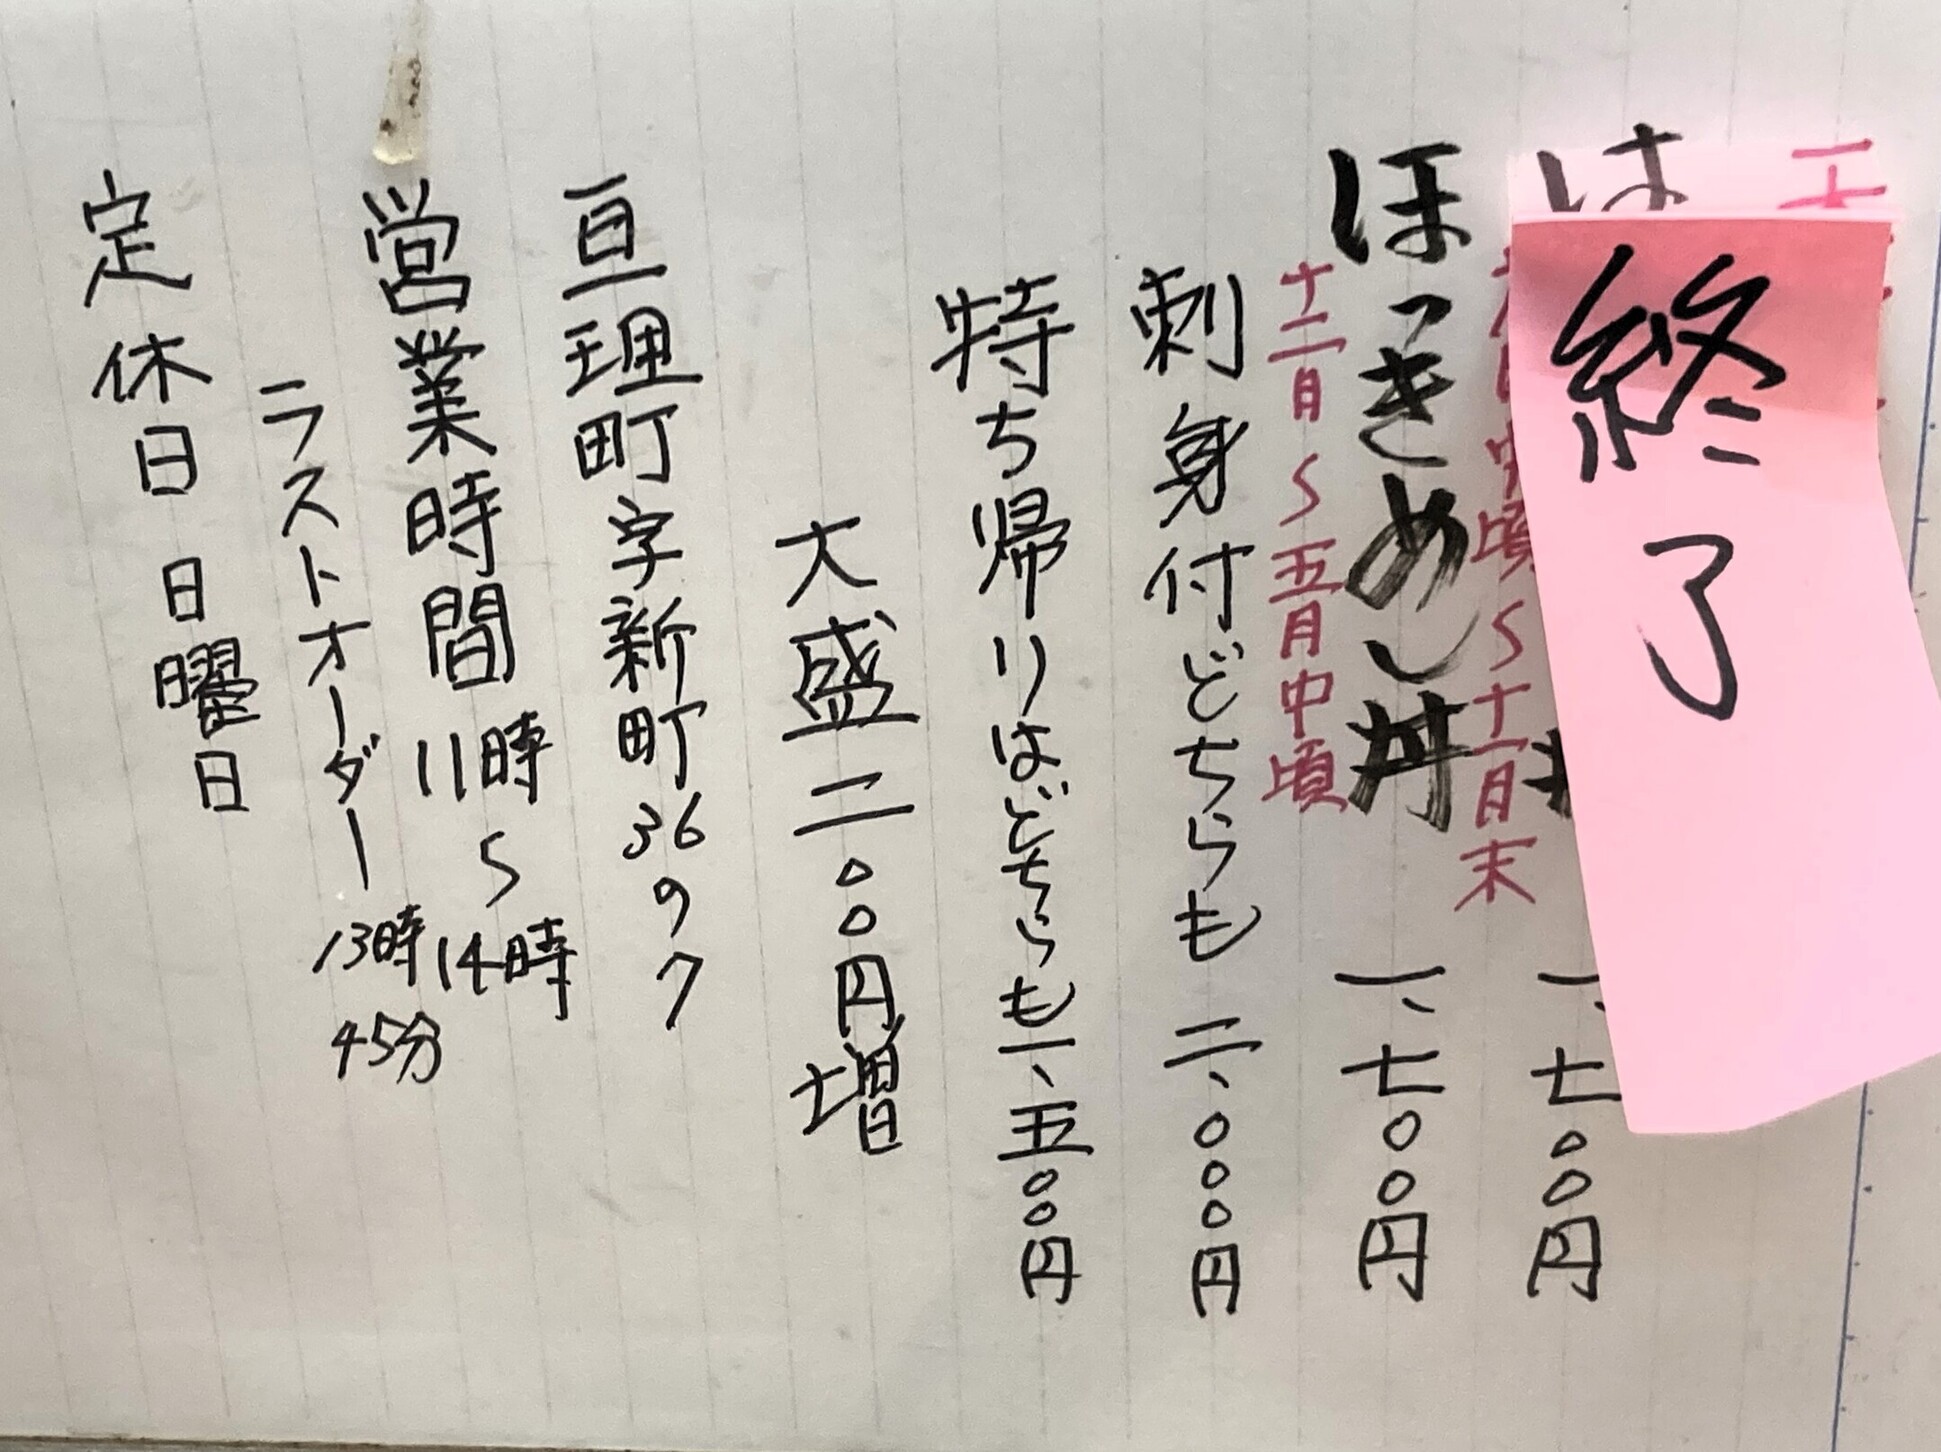 終了
は
一、七〇〇円
頃〜十一月末
ほっきめし丼 一、七〇〇円
十二月〜五月中頃
刺身付どちらも 二、〇〇〇円
持ち帰りはどちらも一、五〇〇円
大盛二〇〇円増
亘理町字新町36の7
営業時間 11時〜14時
ラストオーダー 13時45分
定休日 日曜日